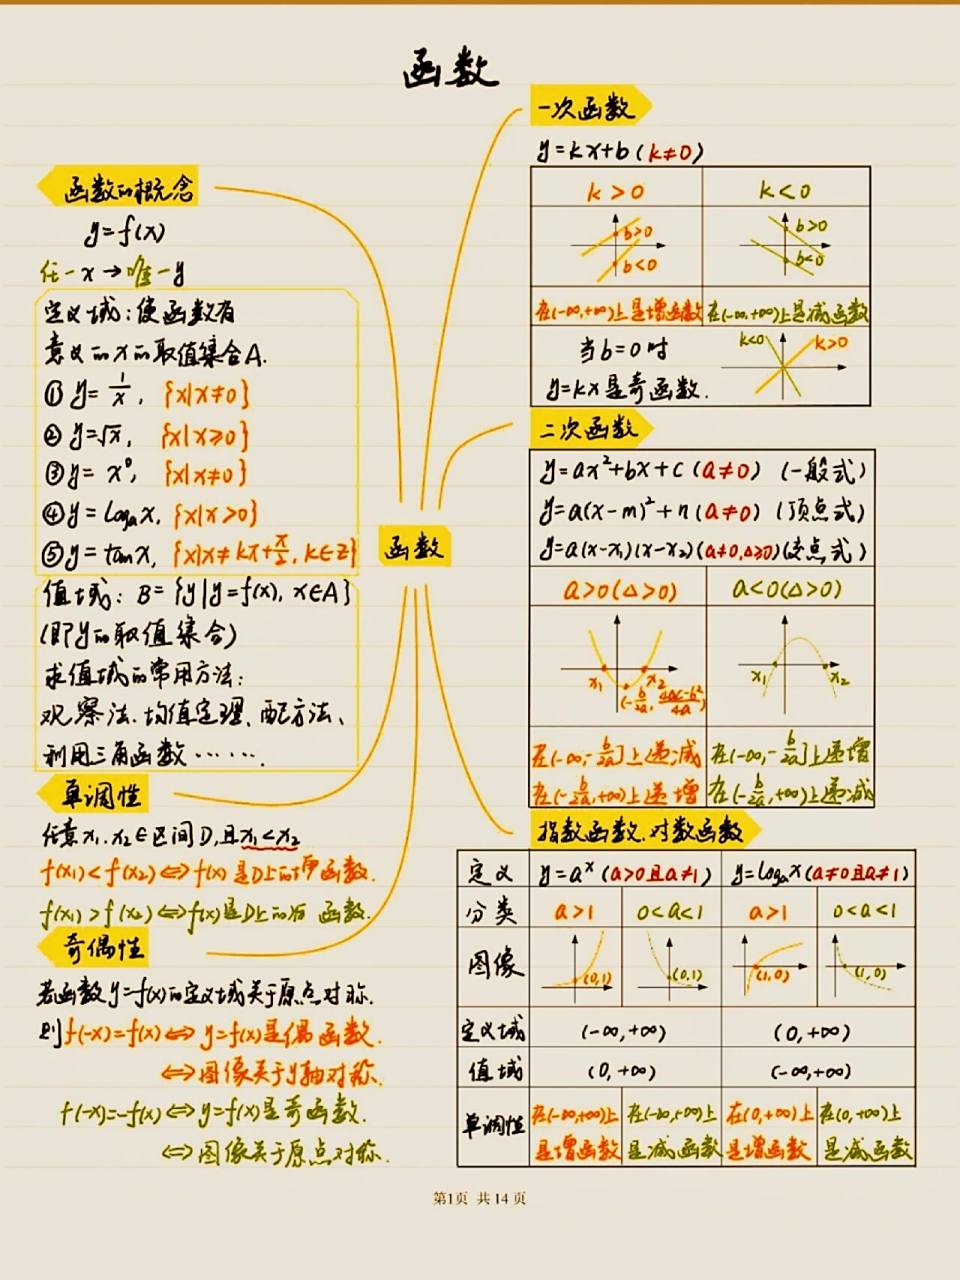 函数
函数的概念
y=f(x)
任一x→唯一y
定义域:使函数有
意义的x的取值集合A.
① y=1/x, {x|x≠0}
② y=√x, {x|x≥0}
③ y=x⁰, {x|x≠0}
④ y=logₐx, {x|x>0}
⑤ y=tanx, {x|x≠kπ+π/2, k∈Z}
值域: B={y|y=f(x), x∈A}
(即y的取值集合)
求值域的常用方法:
观察法、均值定理、配方法、
利用三角函数……
单调性
任意x₁、x₂∈区间D,且x₁<x₂
f(x₁)<f(x₂)⇔f(x)是D上的增函数.
f(x₁)>f(x₂)⇔f(x)是D上的 函数.
奇偶性
若函数y=f(x)的定义域关于原点对称.
则f(-x)=f(x)⇔y=f(x)是偶函数.
⇔图像关于y轴对称.
f(-x)=-f(x)⇔y=f(x)是奇函数.
⇔图像关于原点对称.
函数
一次函数
y=kx+b(k≠0)
k>0 k<0
b>0 b>0
b<0 b<0
在(-∞,+∞)上是增函数 在(-∞,+∞)上是减函数
当b=0时 k<0 k>0
y=kx是奇函数.
二次函数
y=ax²+bx+c(a≠0) (一般式)
y=a(x-m)²+n(a≠0) (顶点式)
y=a(x-x₁)(x-x₂)(a≠0,Δ≥0)(交点式)
a>0(Δ>0) a<0(Δ>0)
x₁ x₂ x₁ x₂
(-b/2a, 4ac-b²/4a)
在(-∞,-b/2a]上递减 在(-∞,-b/2a]上递增
在(-b/2a,+∞)上递增 在(-b/2a,+∞)上递减
指数函数、对数函数
定义 y=aˣ(a>0且a≠1) y=logₐx(a≠0且a≠1)
分类 a>1 0<a<1 a>1 0<a<1
图像 (0,1) (0,1) (1,0) (1,0)
定义域 (-∞,+∞) (0,+∞)
值域 (0,+∞) (-∞,+∞)
单调性 在(-∞,+∞)上 在(-∞,+∞)上 在(0,+∞)上 在(0,+∞)上
是增函数 是减函数 是增函数 是减函数
第1页 共14页